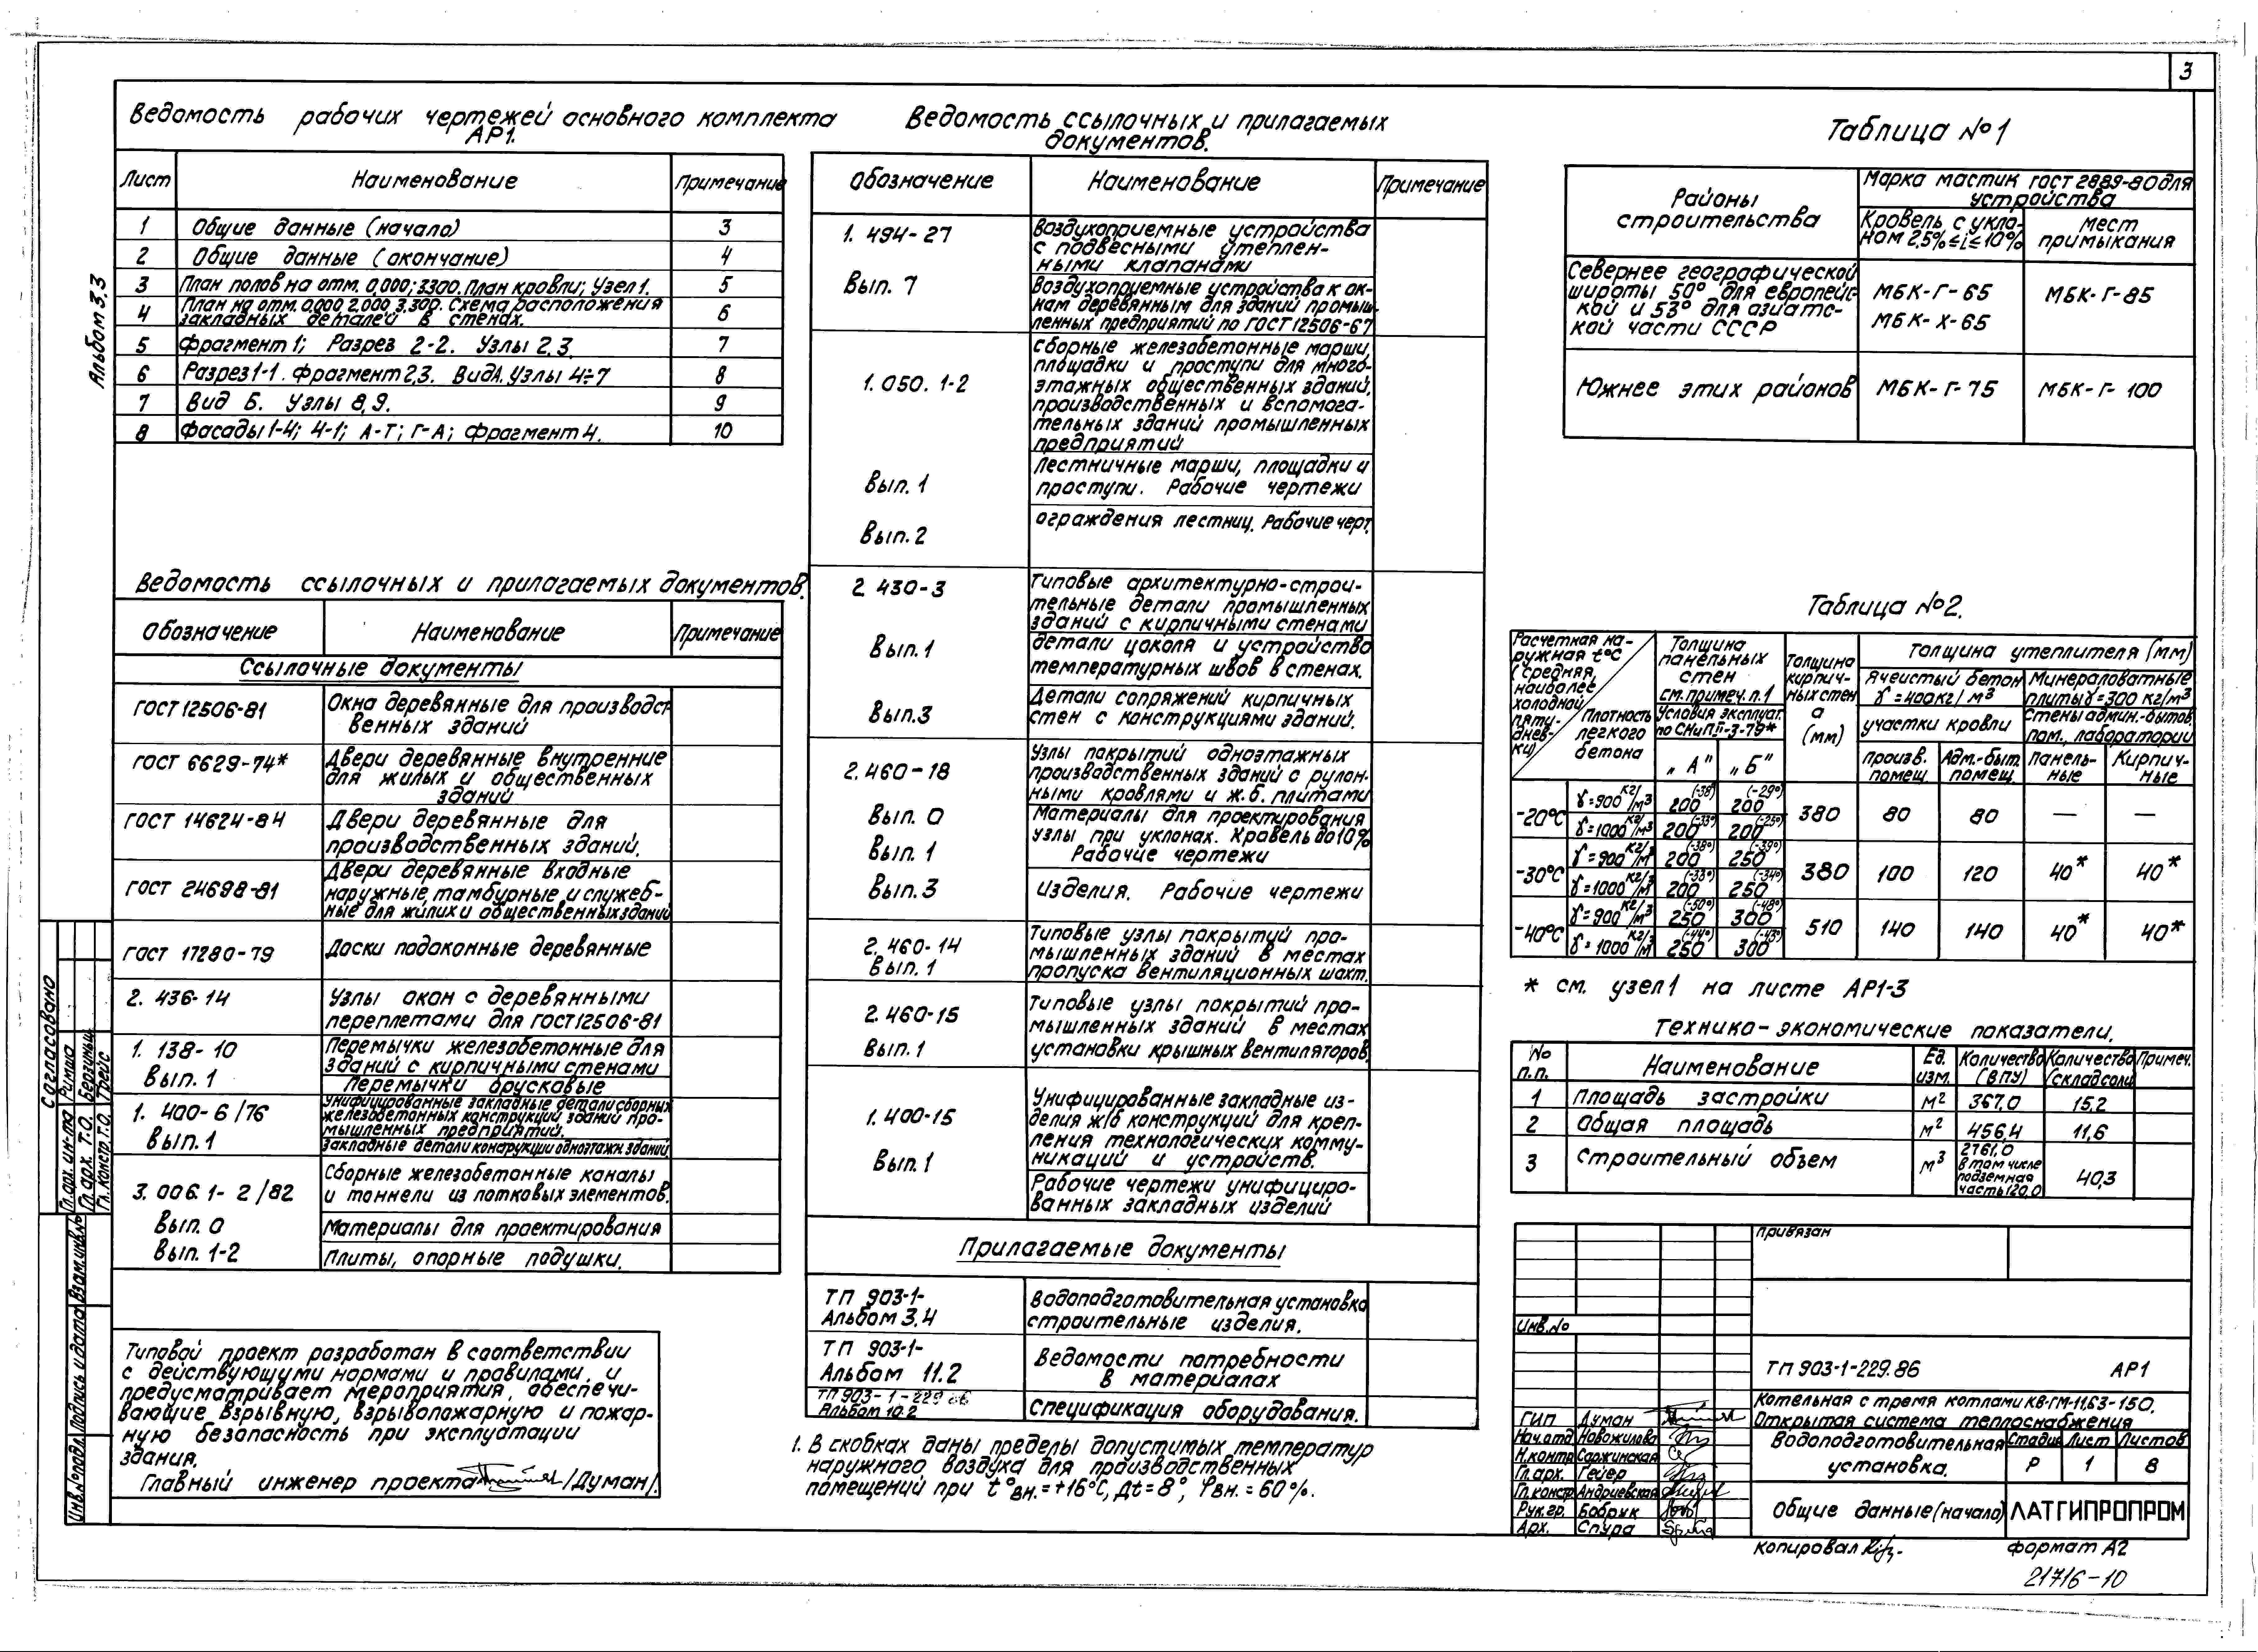 3
Альбом 3,3
Ведомость рабочих чертежей основного комплекта
АР1.
Лист Наименование Примечание
1 Общие данные (начало) 3
2 Общие данные (окончание) 4
3 План полов на отм. 0,000; 3300. План кровли; Узел 1. 5
4 План на отм. 0,000 2,000 3,300. Схема расположения
закладных деталей в стенах. 6
5 Фрагмент 1; Разрез 2-2. Узлы 2,3. 7
6 Разрез 1-1. Фрагмент 2,3. Вид А. Узлы 4÷7 8
7 Вид Б. Узлы 8,9. 9
8 Фасады 1-4; 4-1; А-Г; Г-А; Фрагмент 4. 10
Ведомость ссылочных и прилагаемых документов.
Обозначение Наименование Примечание
Ссылочные документы
ГОСТ 12506-81 Окна деревянные для производст
венных зданий
ГОСТ 6629-74* Двери деревянные внутренние
для жилых и общественных
зданий
ГОСТ 14624-84 Двери деревянные для
производственных зданий.
ГОСТ 24698-81 Двери деревянные входные
наружные, тамбурные и служеб-
ные для жилих и общественных зданий
ГОСТ 17280-79 Доски подоконные деревянные
2. 436-14 Узлы окон с деревянными
переплетами для ГОСТ 12506-81
1. 138-10 Перемычки железобетонные для
зданий с кирпичными стенами
Вып. 1 Перемычки брусковые
1. 400-6/76 Унифицированные закладные детали сборных
железобетонных конструкций зданий про-
мышленных предприятий.
Вып. 1 Закладные детали конструкции одноэтажн. зданий.
3. 006.1-2/82 Сборные железобетонные каналы
и тоннели из лотковых элементов.
Вып. 0 Материалы для проектирования
Вып. 1-2 Плиты, опорные подушки.
Типовой проект разработан в соответствии
с действующими нормами и правилами, и
предусматривает мероприятия, обеспечи-
вающие взрывную, взрывопожарную и пожар-
ную безопасность при эксплуатации
здания.
Главный инженер проекта /Думан/.
Ведомость ссылочных и прилагаемых
документов.
Обозначение Наименование Примечание
1. 494-27 Воздухоприемные устройства
с подвесными утеплен-
ными клапанами
Вып. 7 Воздухоприемные устройства к ок-
нам деревянным для зданий промыш-
ленных предприятий по ГОСТ 12506-67
1. 050. 1-2 Сборные железобетонные марши,
площадки и проступи для много-
этажных общественных зданий,
производственных и вспомога-
тельных зданий промышленных
предприятий
Вып. 1 Лестничные марши, площадки и
проступи. Рабочие чертежи
Вып. 2 Ограждения лестниц. Рабочие черт.
2. 430-3 Типовые архитектурно-строи-
тельные детали промышленных
зданий с кирпичными стенами
Вып. 1 детали цоколя и устройство
температурных швов в стенах.
Вып. 3 Детали сопряжений кирпичных
стен с конструкциями зданий.
2. 460-18 Узлы покрытий одноэтажных
производственных зданий с рулон-
ными кровлями и ж.б. плитами
Вып. 0 Материалы для проектирования
Вып. 1 Узлы при уклонах. Кровель до 10%
Рабочие чертежи
Вып. 3 Изделия. Рабочие чертежи
2. 460-14 Типовые узлы покрытий про-
Вып. 1 мышленных зданий в местах
пропуска вентиляционных шахт.
2. 460-15 Типовые узлы покрытий про-
мышленных зданий в местах
Вып. 1 установки крышных вентиляторов.
1. 400-15 Унифицированные закладные из-
делия ж/б конструкций для креп-
ления технологических комму-
никаций и устройств.
Вып. 1 Рабочие чертежи унифициро-
ванных закладных изделий
Прилагаемые документы
ТП 903-1- Водоподготовительная установка
Альбом 3.4 строительные изделия.
ТП 903-1- Ведомости потребности
Альбом 11.2 в материалах
ТП 903-1-229.86
Альбом 10.2 Спецификация оборудования.
1. В скобках даны пределы допустимых температур
наружного воздуха для производственных
помещений при t°вн.=+16°С, Δt=8°, φвн.=60%.
Таблица №1
Районы строительства Марка мастик ГОСТ 2889-80 для
устройства
Кровель с укло-
ном 2,5%≤i≤10% мест
примыкания
Севернее географической
широты 50° для европейс-
кой и 53° для азиатс-
кой части СССР МБК-Г-65
МБК-Х-65 МБК-Г-85
Южнее этих районов МБК-Г-75 МБК-Г-100
Таблица №2.
Расчетная на-
ружная t°С
(средняя,
наиболее
холодной
пяти-
днев-
ки)
Плотность
легкого
бетона
Толщина
панельных
стен
см. примеч. п.1
Условия эксплуат.
по СНиП II-3-79*
„А" „Б"
Толщина
кирпич-
ных стен
а
(мм)
Толщина утеплителя (мм)
Ячеистый бетон
γ=400кг/м³
Минераловатные
плиты γ=300 кг/м³
участки кровли
Стены админ.-бытов.
пом., лаборатории
произв.
помещ. Адм.-быт.
помещ. Панель-
ные Кирпич-
ные
-20°С γ=900 кг/м³ 200 (-38°) 200 (-29°) 380 80 80 — —
γ=1000 кг/м³ 200 (-33°) 200 (-25°)
-30°С γ=900 кг/м³ 200 (-38°) 250 (-39°) 380 100 120 40* 40*
γ=1000 кг/м³ 200 (-33°) 250 (-34°)
-40°С γ=900 кг/м³ 250 (-50°) 300 (-48°) 510 140 140 40* 40*
γ=1000 кг/м³ 250 (-44°) 300 (-43°)
* см. узел 1 на листе АР1-3
Технико-экономические показатели.
№
п.п. Наименование Ед.
изм. Количество
(ВПУ) Количество
(склад соли) Примеч.
1 Площадь застройки м² 367,0 15,2
2 Общая площадь м² 456,4 11,6
3 Строительный объем м³ 2761,0
в том числе
подземная
часть 120,0 40,3
Привязан
Инв. №
ТП 903-1-229.86 АР1
Котельная с тремя котлами КВ-ГМ-11,63-150.
Открытая система теплоснабжения
ГИП Думан
Нач.отд Новожилова
Н.контр Саржинская
Гл.арх. Гейер
Гл.констр Андриевская
Рук.гр. Бобрук
Арх. Спура
Водоподготовительная
установка.
Стадия Лист Листов
Р 1 8
Общие данные (начало)
ЛАТГИПРОПРОМ
Копировал
Формат А2
21716-10
Согласовано
Гл.арх. ин-та Римша
Гл. арх. Т.О. Берзиньш
Гл. констр. Т.О. Грейс
Инв.№подл. Подпись и дата Взам.инв.№